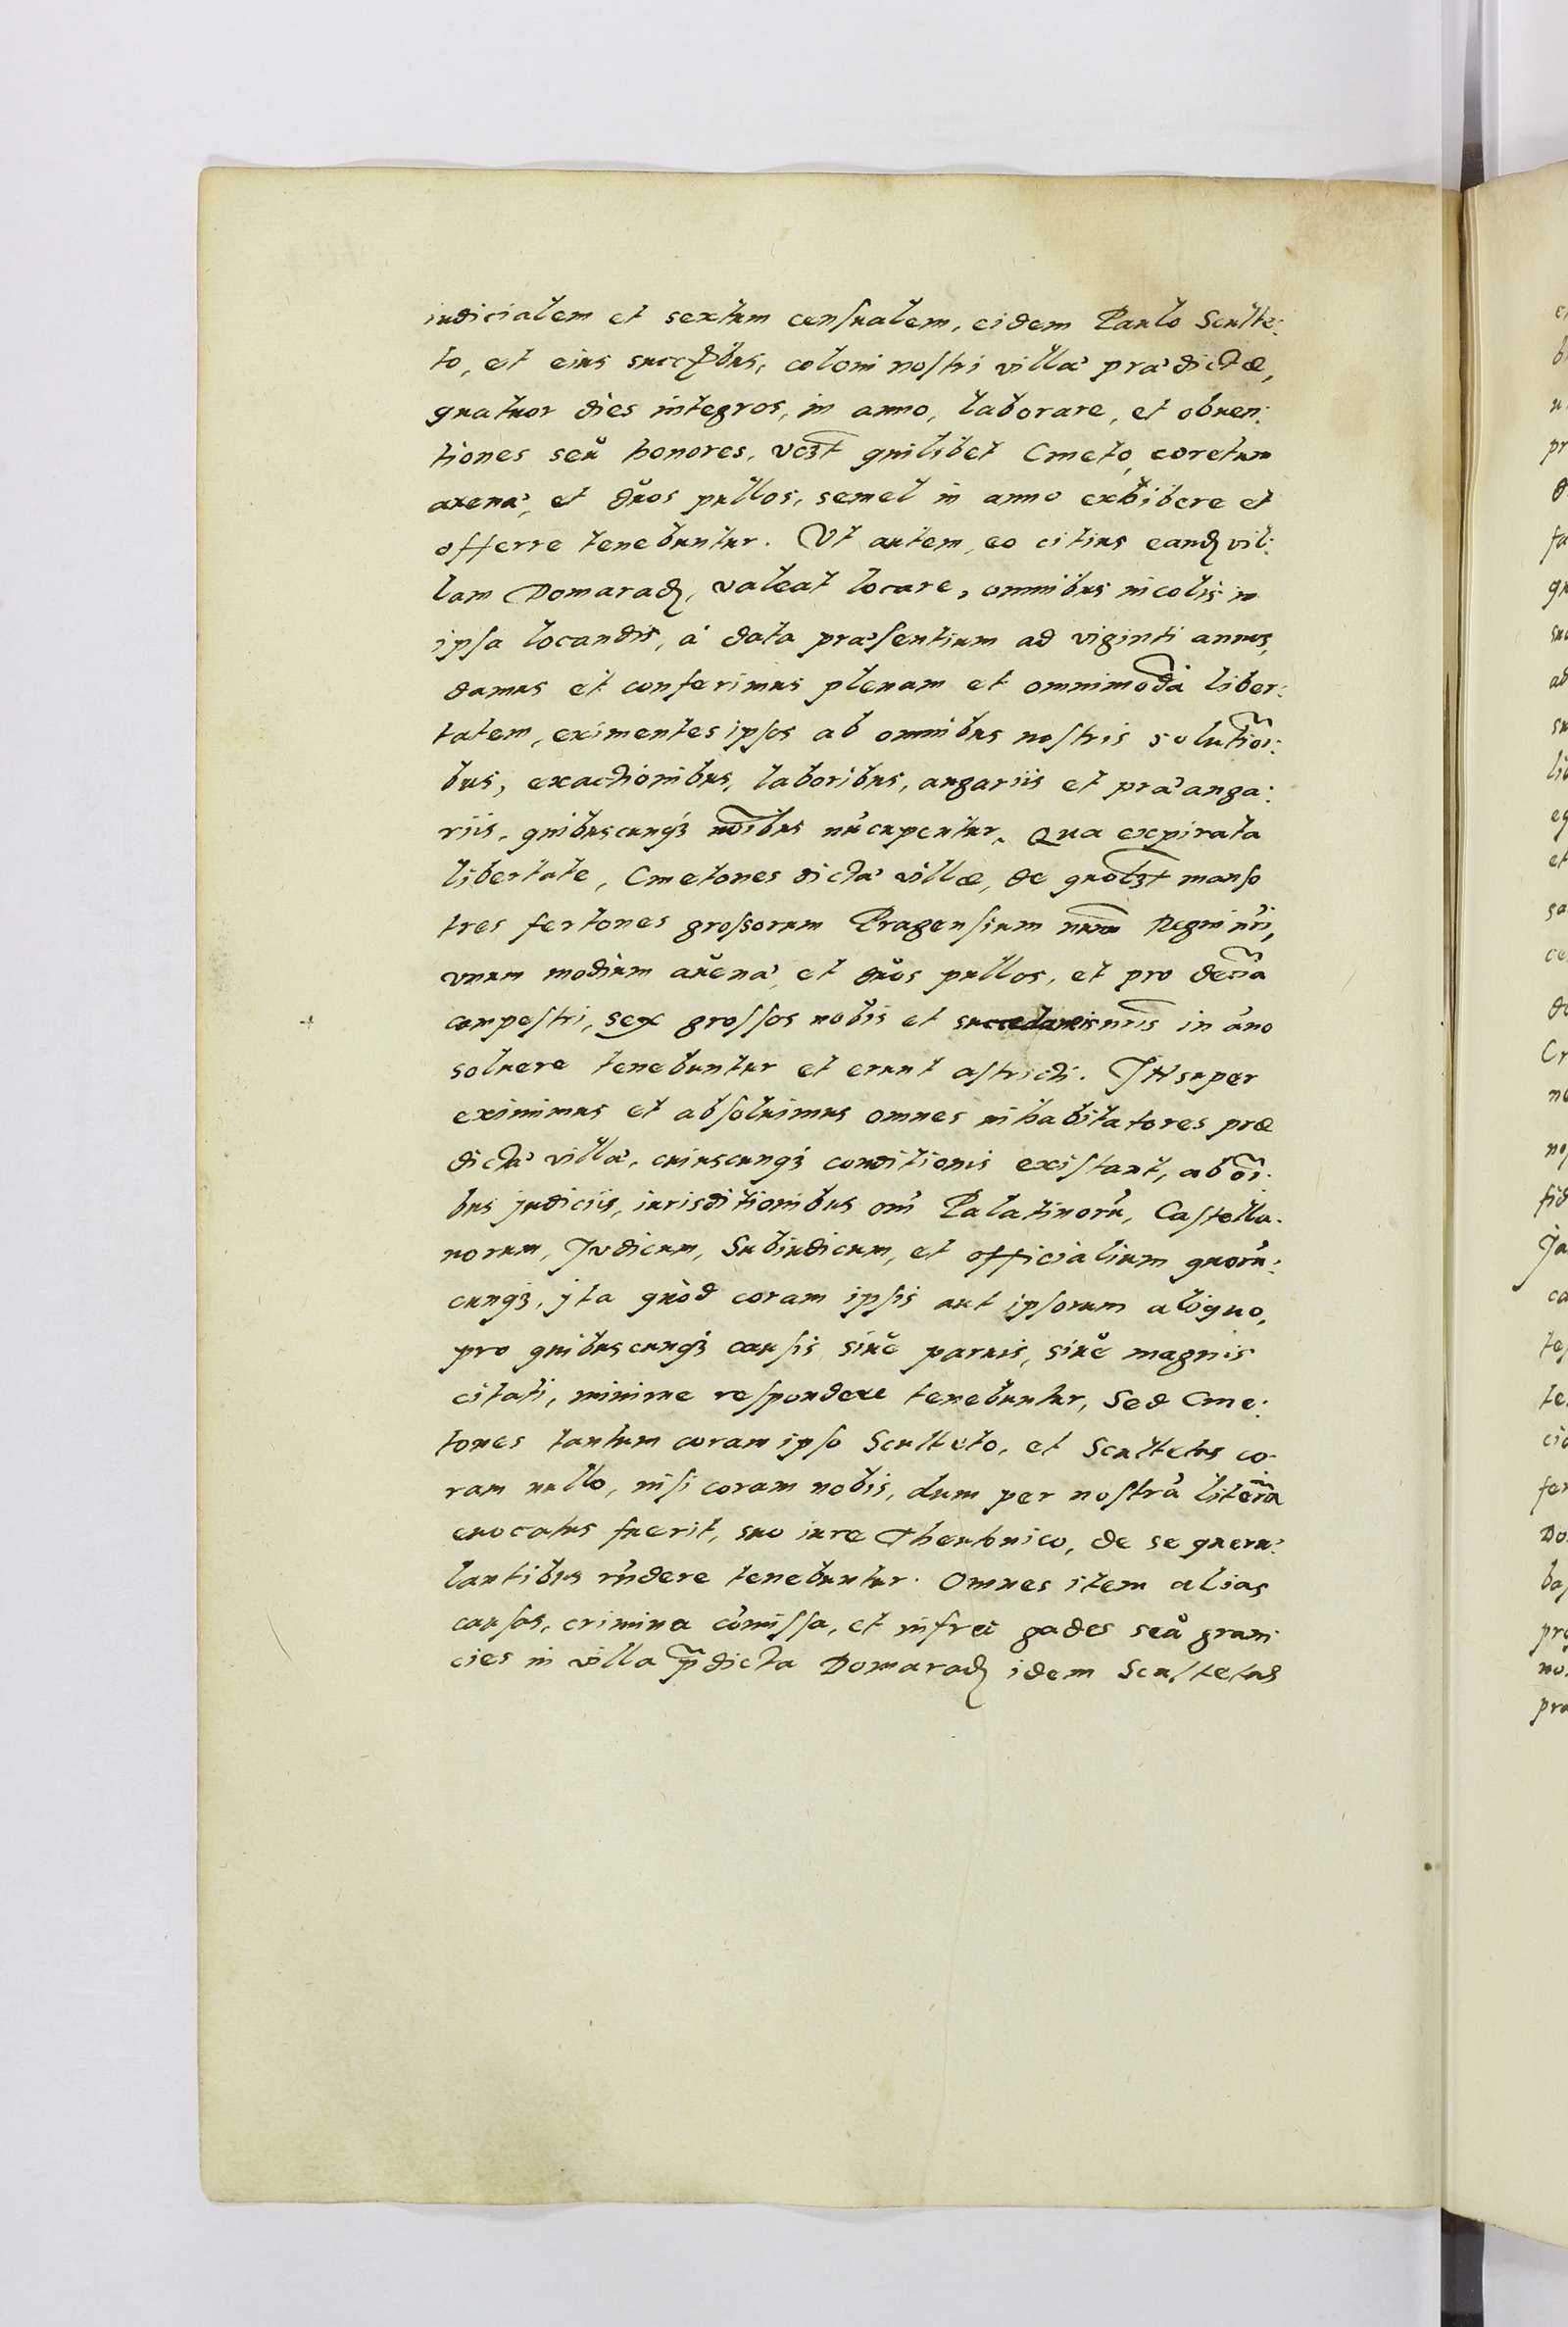 iudicialem et sextum censualem, eidem Paulo Sculte:
to, et eius succꝭbus, coloni nostri villæ prædictæ,
quatuor dies integros, in anno, laborare, et obuen:
tiones seu honores, vczt quilibet Cmeto, coretum
auenæ, et duos pullos, semel in anno exhibere et
offerre tenebuntur. Vt autem, eo citius eandẽ vil:
lam Domaradz, valeat locare, omnibus incolis in
ipsa locandis, á data præsentium ad viginti annos,
damus et conferimus plenam et omnimodã liber:
tatem, eximentes ipsos ab omnibus nostris solutiõi:
bus, exactionibus, laboribus, angariis et præanga:
riis, quibuscunqꝫ nõibus nũcupentur. Qua expirata
libertate, Cmetones dictæ villæ, de quolꝫt manso
tres fertones grossorum Pragensium nũm Regni nr̃i,
vnum modium auenæ, et duos pullos, et pro decĩa
campestri, sex grossos nobis et succedaneis nr̃is in ãno
soluere tenebuntur et erunt astricti. INsuper
eximimus et absoluimus omnes inhabitatores præ
dictæ villæ, cuiuscunqꝫ conditionis existant, ab õi:
bus judiciis, iurisditionibus om̃ Palatinorũ, Castella:
norum, Judicum, Subiudicum, et officialium quorũ:
cunqꝫ, jta quòd coram ipsis aut ipsorum aliquo,
pro quibuscunqꝫ causis siue paruis, siue magnis
citati, minime respondere tenebuntur, Sed Cme:
tones tantum coram ipso Sculteto, et Scultetus co:
ram nullo, nisi coram nobis, dum per nostrã literã
euocatus fuerit, suo iure Theutonico, de se queru:
lantibus rñdere tenebuntur. Omnes item alias
causas, crimina cõmissa, et infra gades seu grani
cies in villa p̃dicta Domaradz idem Scultetus